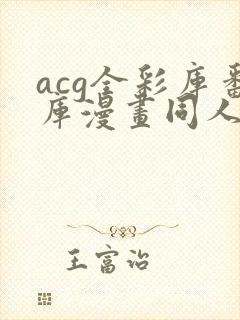 acg全彩库番
库漫畫同人
王富治